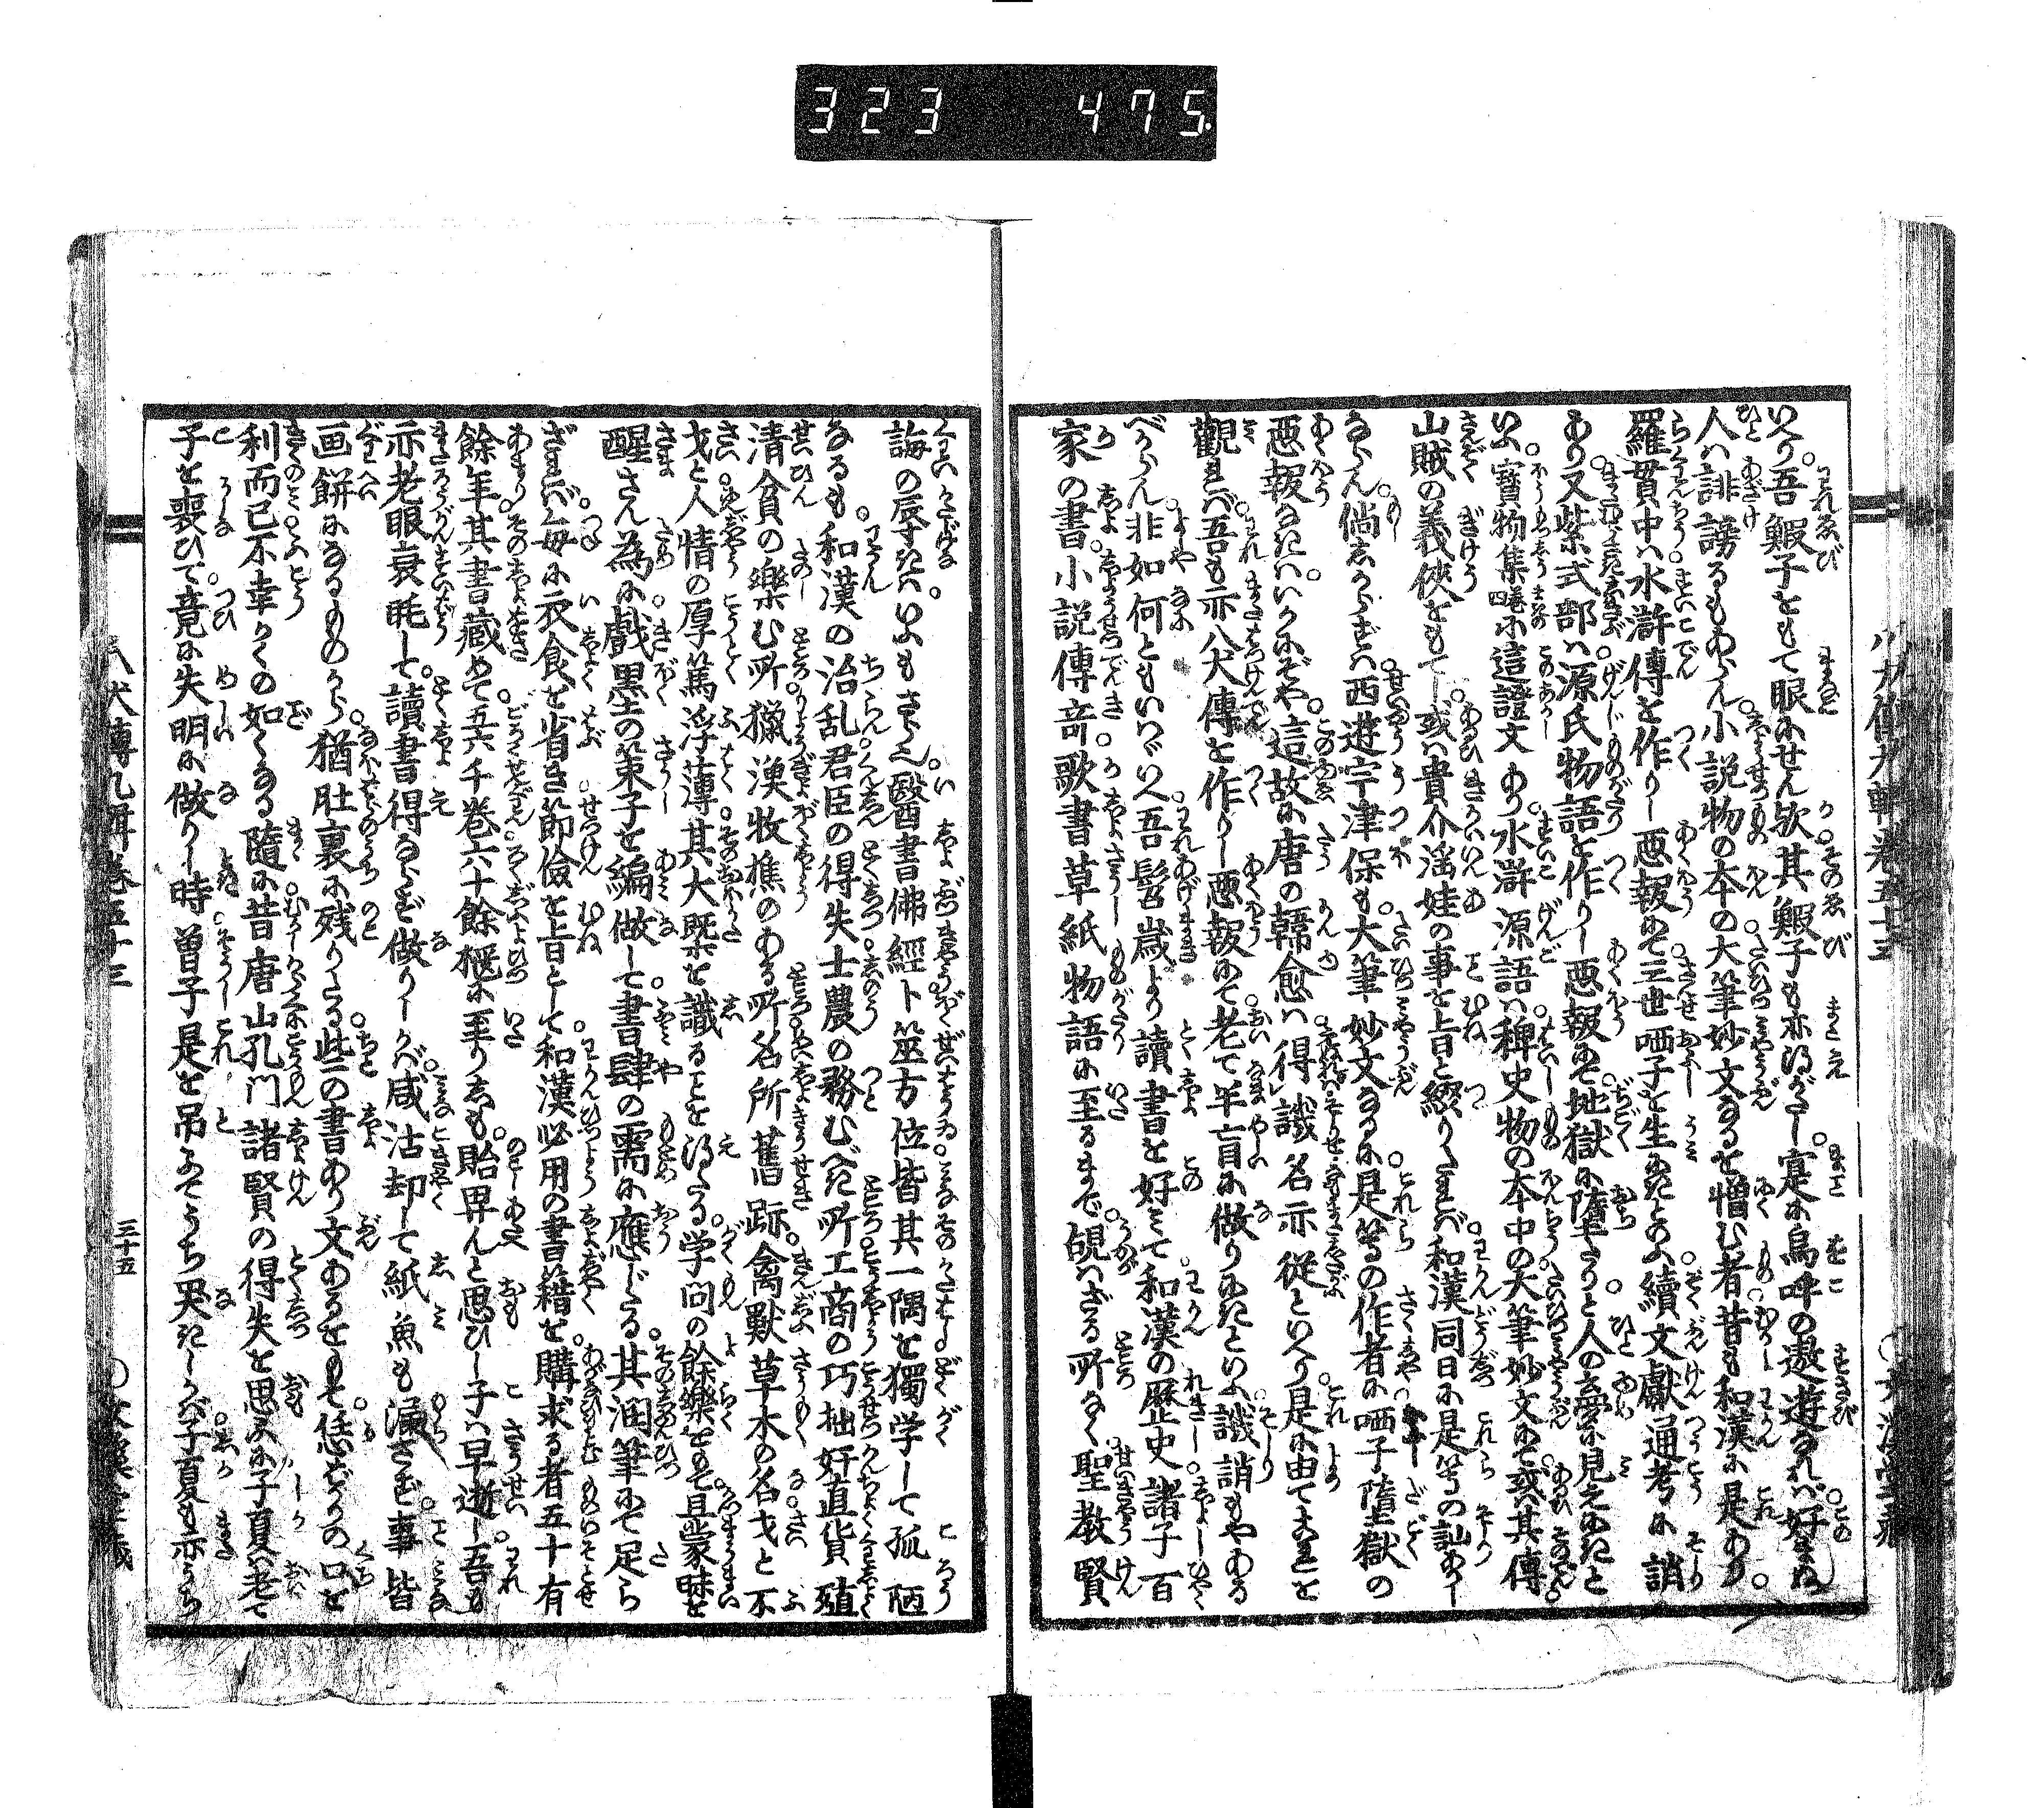 323 475.
いへり。吾鰕子をもて眼にせん欤。其鰕子も亦得がたし。寔に烏呼の遨遊なれバ好まぬ
人ハ誹謗るもあらん。小説物の本の大筆妙文なるを憎む者。昔も和漢に是あり。
羅貫中ハ水滸傳を作りし悪報にて三世唖子を生にきとふ續文献通考に誚
あり。又紫式部ハ源氏物語を作りし悪報にて地獄に墮たりと人の夢に見えにきと
いふ。寳物集四巻に這證文あり。水滸源語ハ稗史物の本中の大筆妙文にて或ハ其傳
山賊の義侠をもてし。或ハ貴介滛娃の事を旨と綴りたれバ和漢同日に是等の訕あり
ならん。倘しからずハ西遊宇津保も大筆妙文なるに是等の作者に唖子墮獄の
悪報なきハいかにぞや。這故に唐の韓愈ハ得譏名亦従といへり。是に由てこれを
觀れバ吾も亦八犬傳を作りし悪報にて老て半盲に做りにきといふ譏誚もやある
べからん。非如何ともいハヾいへ。吾髫歳より讀書を好みて和漢の歴史諸子百
家の書小説傳竒歌書草紙物語に至るまで覘ハざる所なく聖教賢
誨の辱きハいふもさら也。醫書佛經卜筮方位皆其一隅を獨学して孤陋
なるも。和漢の治乱君臣の得失士農の務むべき所工商の巧拙奸直貨殖
清貧の樂む所。獵漁牧樵のある所名所舊跡。禽獸草木の名。才と不
才と人情の厚篤浮薄。其大槩を識ることを得たる。学問の餘樂をもて且蒙昧を
醒さん為に戲墨の策子を編做して書肆の需に應じたる。其潤筆にて足ら
ざれバ毎に衣食を省き節儉を旨として和漢必用の書籍を購求る者五十有
餘年其書藏めて五六千巻六十餘櫃に至りしも。貽畀んと思ひし子ハ早逝し吾も
亦老眼衰眊して。讀書得ならず做りしかバ咸沽却して紙魚も漏さず。事皆
画餅になるものから猶肚裏に残りたる些の書あり文あるをもて恁ばかりの口を
利而已。不幸かくの如くなる隨に昔唐山孔門諸賢の得失を思ふに子夏ハ老て
子を喪ひて竟に失明に做りし時曽子是を吊ふてうち哭きしかバ子夏も亦うち
八犬傳九輯巻五十三
三十五